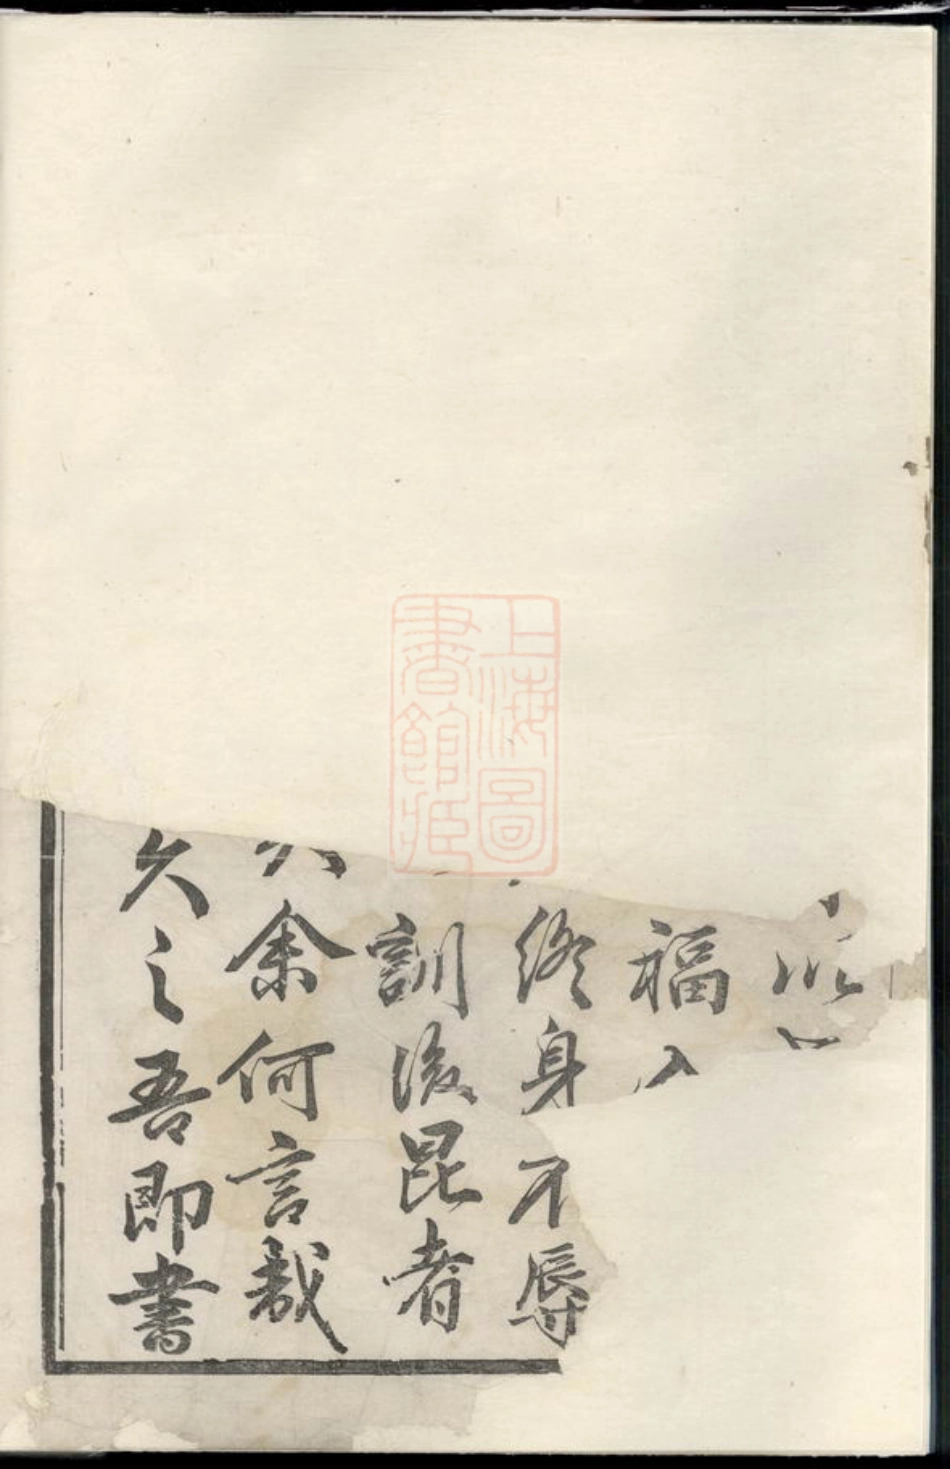 福
終身不辱
訓後昆者
余何言哉
久之吾即書
上海圖書館藏